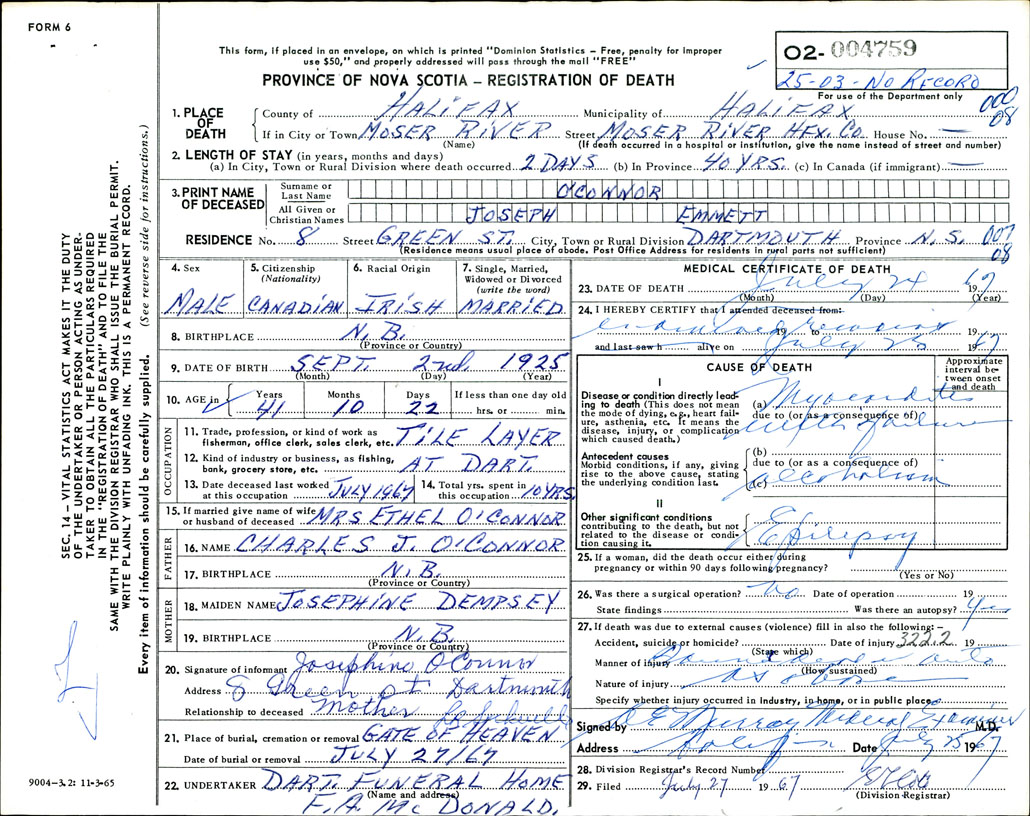 FORM 6
This form, if placed in an envelope, on which is printed "Dominion Statistics – Free, penalty for improper
use $50," and properly addressed will pass through the mail "FREE"
PROVINCE OF NOVA SCOTIA – REGISTRATION OF DEATH
02-004759
25-03-NO RECORD
For use of the Department only
000
08
1. PLACE OF DEATH
County of HALIFAX Municipality of HALIFAX
If in City or Town MOSER RIVER Street MOSER RIVER HFX. CO. House No. —
(Name) (If death occurred in a hospital or institution, give the name instead of street and number)
2. LENGTH OF STAY (in years, months and days)
(a) In City, Town or Rural Division where death occurred 2 DAYS (b) In Province 40 YRS. (c) In Canada (if immigrant) —
3. PRINT NAME OF DECEASED
Surname or Last Name O'CONNOR
All Given or Christian Names JOSEPH EMMETT
RESIDENCE No. 8 Street GREEN ST. City, Town or Rural Division DARTMOUTH Province N.S.
08
(Residence means usual place of abode. Post Office Address for residents in rural parts not sufficient)
4. Sex
MALE
5. Citizenship (Nationality)
CANADIAN
6. Racial Origin
IRISH
7. Single, Married, Widowed or Divorced (write the word)
MARRIED.
8. BIRTHPLACE N.B.
(Province or Country)
9. DATE OF BIRTH SEPT. 2nd. 1925
(Month) (Day) (Year)
10. AGE in Years 41 Months 10 Days 22 If less than one day old hrs. or min.
OCCUPATION
11. Trade, profession, or kind of work as fisherman, office clerk, sales clerk, etc. TILE LAYER
12. Kind of industry or business, as fishing, bank, grocery store, etc. AT DART.
13. Date deceased last worked at this occupation JULY 1967
14. Total yrs. spent in this occupation 10 YRS.
15. If married give name of wife or husband of deceased MRS ETHEL O'CONNOR
FATHER
16. NAME CHARLES J. O'CONNOR
17. BIRTHPLACE N.B.
(Province or Country)
MOTHER
18. MAIDEN NAME JOSEPHINE DEMPSEY
19. BIRTHPLACE N.B.
(Province or Country)
20. Signature of informant Josephine O'Connor
Address 8 Green st Dartmouth
Relationship to deceased Mother
21. Place of burial, cremation or removal GATE OF HEAVEN
Date of burial or removal JULY 27/67
22. UNDERTAKER DART. FUNERAL HOME
(Name and address)
F.A. McDONALD.
MEDICAL CERTIFICATE OF DEATH
23. DATE OF DEATH July 24 1967
(Month) (Day) (Year)
24. I HEREBY CERTIFY that I attended deceased from:
19 to 19
and last saw h alive on July 25 1967
CAUSE OF DEATH
Approximate interval between onset and death
I
Disease or condition directly leading to death (This does not mean the mode of dying, e.g., heart failure, asthenia, etc. It means the disease, injury, or complication which caused death.)
(a) Myocarditis
due to (or as a consequence of)
with failure
Antecedent causes
Morbid conditions, if any, giving rise to the above cause, stating the underlying condition last.
(b)
due to (or as a consequence of)
(c) alcoholism
II
Other significant conditions contributing to the death, but not related to the disease or condition causing it.
Epilepsy
25. If a woman, did the death occur either during
pregnancy or within 90 days following pregnancy?
(Yes or No)
26. Was there a surgical operation? No Date of operation 19
State findings Was there an autopsy? Yes
27. If death was due to external causes (violence) fill in also the following:–
Accident, suicide or homicide? Date of injury 322.2 19
(State which)
Manner of injury Found dead in auto
(How sustained)
Nature of injury as above
Specify whether injury occurred in industry, in home, or in public place
Signed by Murray Medical Examiner M.D.
Address Halifax Date July 25 1967
28. Division Registrar's Record Number
29. Filed July 27 1967
(Division Registrar)
SEC. 14 – VITAL STATISTICS ACT MAKES IT THE DUTY
OF THE UNDERTAKER OR PERSON ACTING AS UNDER-
TAKER TO OBTAIN ALL THE PARTICULARS REQUIRED
IN THE "REGISTRATION OF DEATH" AND TO FILE THE
SAME WITH THE DIVISION REGISTRAR WHO SHALL ISSUE THE BURIAL PERMIT.
WRITE PLAINLY WITH UNFADING INK. THIS IS A PERMANENT RECORD.
Every item of information should be carefully supplied. (See reverse side for instructions.)
9004-3.2: 11-3-65